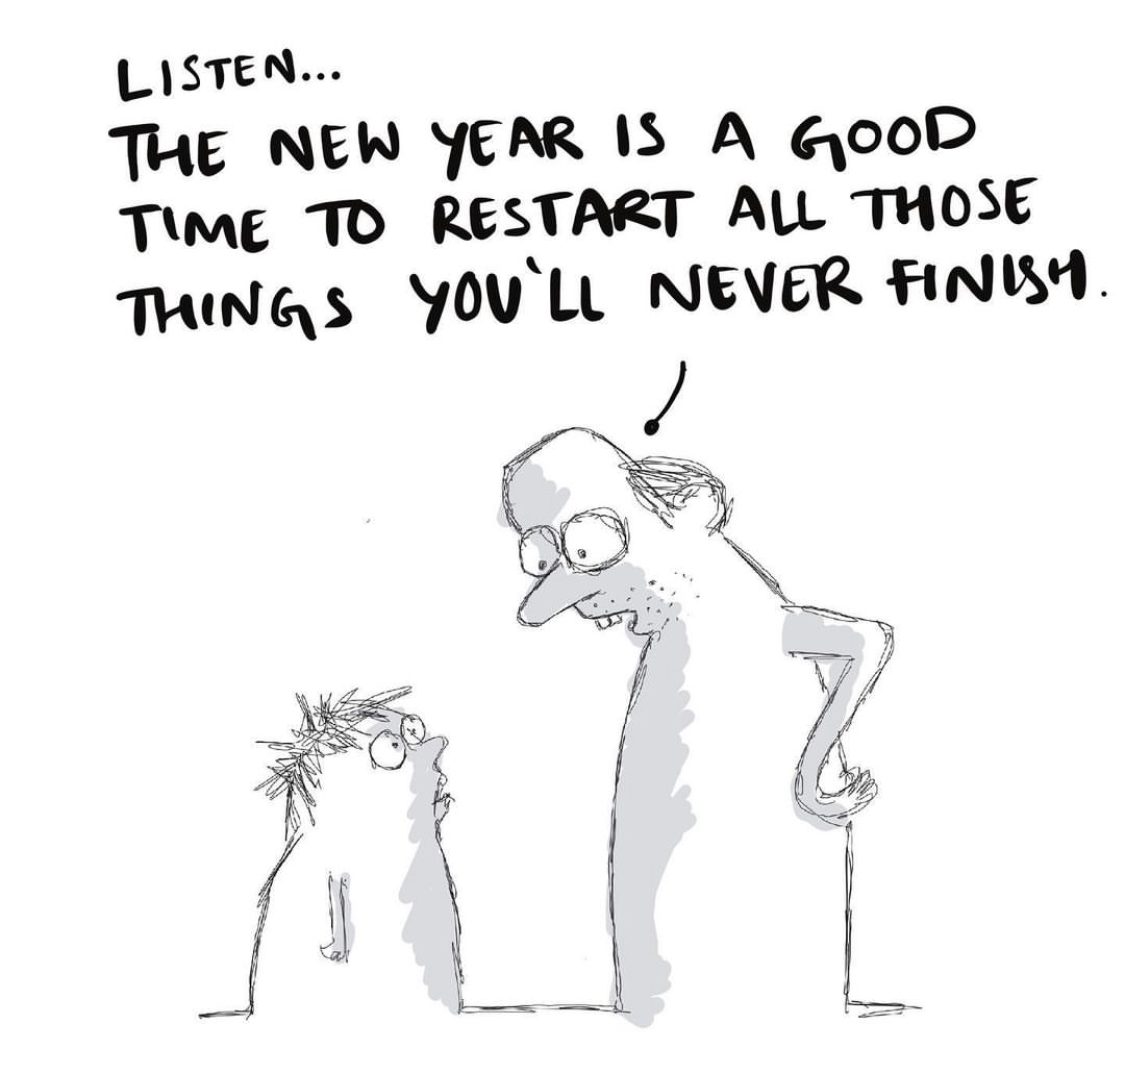 LISTEN...
THE NEW YEAR IS A GOOD
TIME TO RESTART ALL THOSE
THINGS YOU'LL NEVER FINISH.